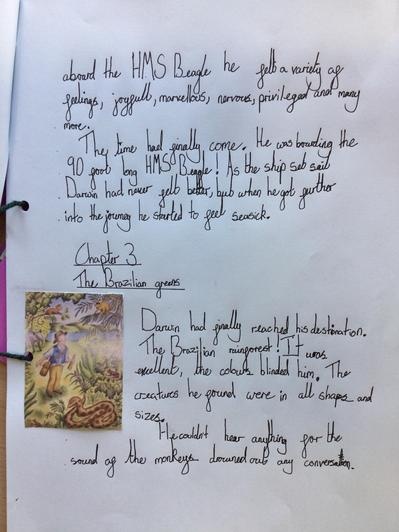 aboard the HMS Beagle he felt a variety of
feelings, joyfull, marvellous, nervous, privileged and many
more.
The time had finally come. He was boarding the
90 foot long HMS Beagle! As the ship set sail
Darwin had never felt better, but when he got further
into the journey he started to feel seasick.
Chapter 3
The Brazilian greens
Darwin had finally reached his destination.
The Brazilian rainforest! It was
excellent, the colours blinded him. The
creatures he found were in all shapes and
sizes.
He couldn't hear anything for the
sound of the monkeys drowned out any conversation.